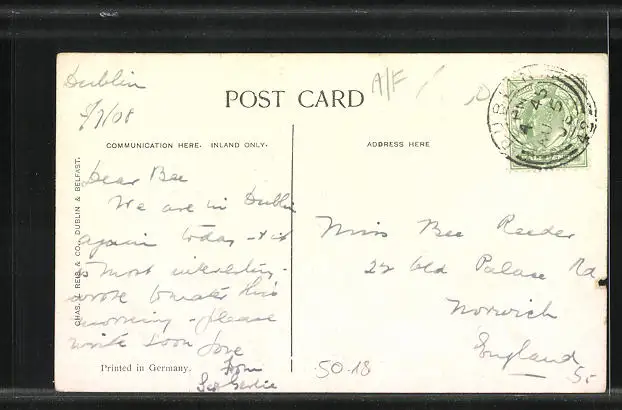 Dublin
A/F
POST CARD
COMMUNICATION HERE. INLAND ONLY.
ADDRESS HERE
CHAS. L. REIS & CO., DUBLIN & BELFAST.
Dear Bee
We are in Dublin
again today - & it
is most interesting -
wrote to mater this
morning - please
write soon love
from
Printed in Germany.
Miss Bee Reeder
22 Old Palace Rd
Norwich
England
50-18
5-
DUBLIN